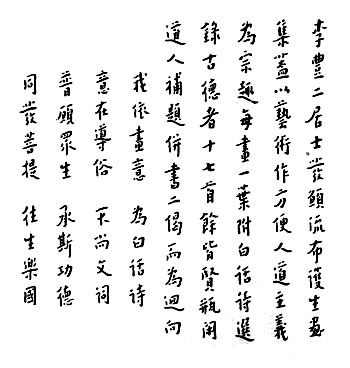 李豐二居士發願流布護生畫
集蓋以藝術作方便人道主義
為宗趣每畫一葉附白話詩選
錄古德者十七首餘皆賢瓶閑
道人補題併書二偈而為迴向
我依畫意 為白話詩
意在導俗 不尚文詞
普願眾生 承斯功德
同發菩提 往生樂國